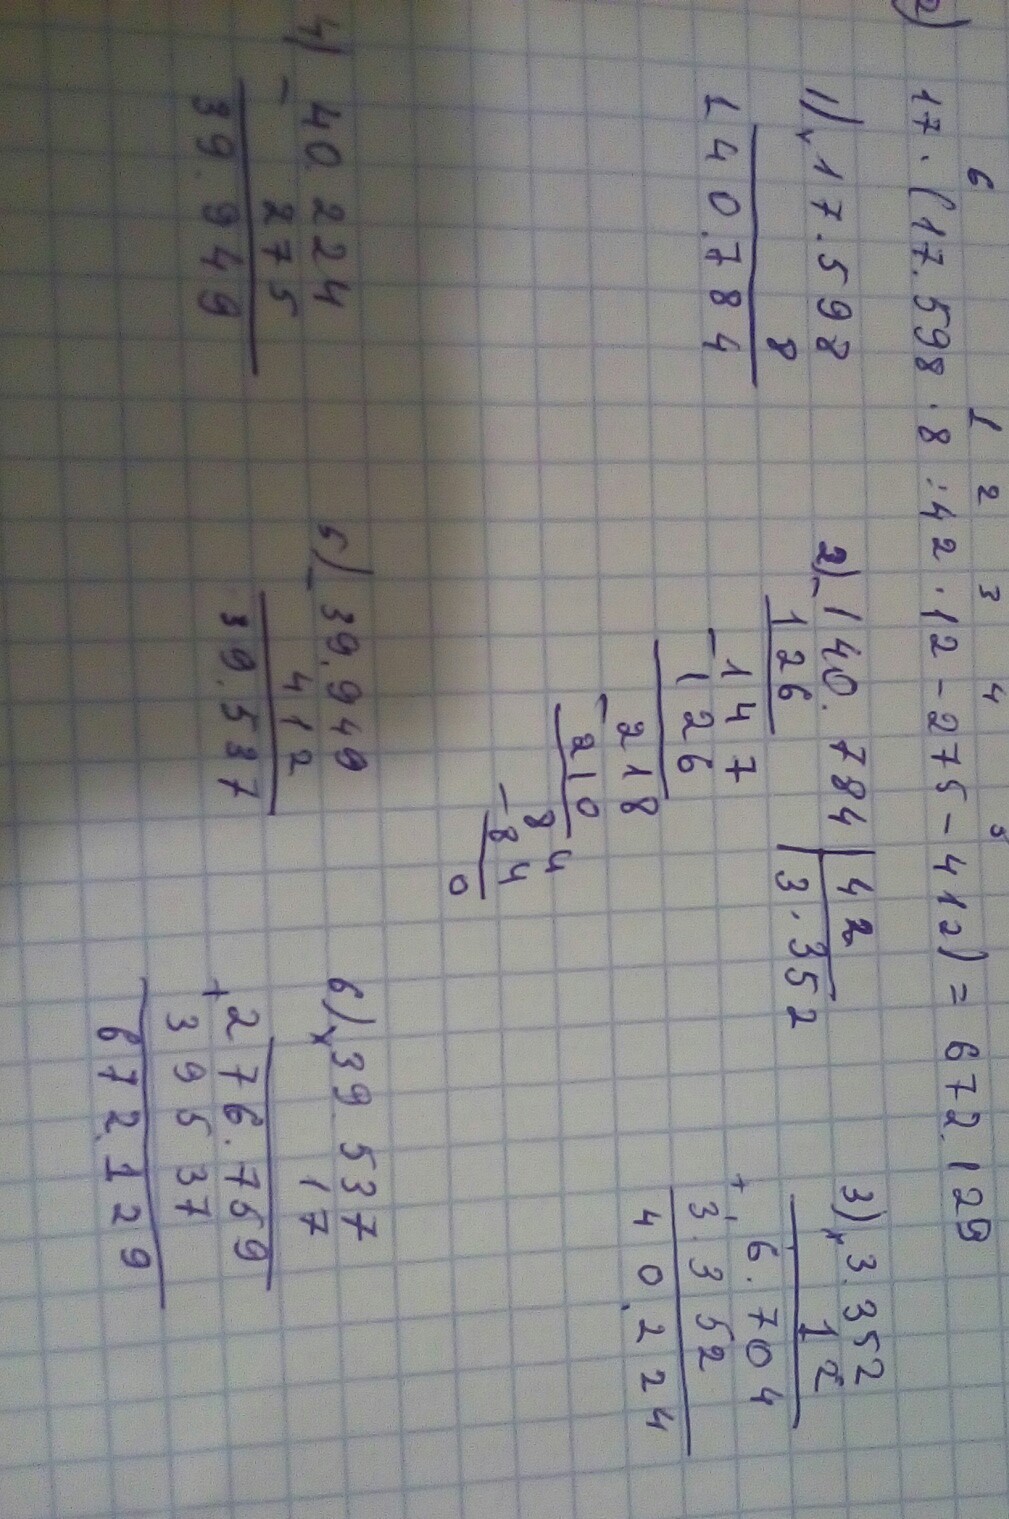 2)
6 1 2 3 4 5
17 · (17.598 · 8 : 42 · 12 - 275 - 412) = 672.129
1) x 17.598
8
140.784
2) - 140.784 | 42
126 3.352
- 147
126
- 218
210
84
- 84
0
3) x 3.352
12
+ 6.704
3.352
40.224
4) - 40.224
275
39.949
5) - 39.949
412
39.537
6) x 39.537
17
+ 276.759
39537
672.129